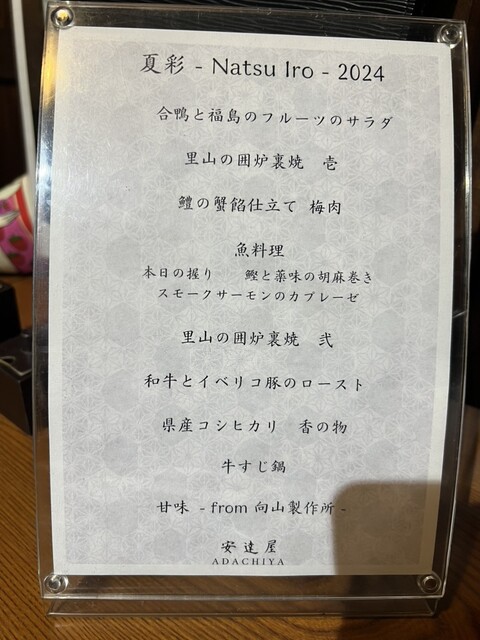 夏彩 - Natsu Iro - 2024
合鴨と福島のフルーツのサラダ
里山の囲炉裏焼 壱
鱧の蟹餡仕立て 梅肉
魚料理
本日の握り 鰹と薬味の胡麻巻き
スモークサーモンのカプレーゼ
里山の囲炉裏焼 弐
和牛とイベリコ豚のロースト
県産コシヒカリ 香の物
牛すじ鍋
甘味 - from 向山製作所 -
安達屋
ADACHIYA